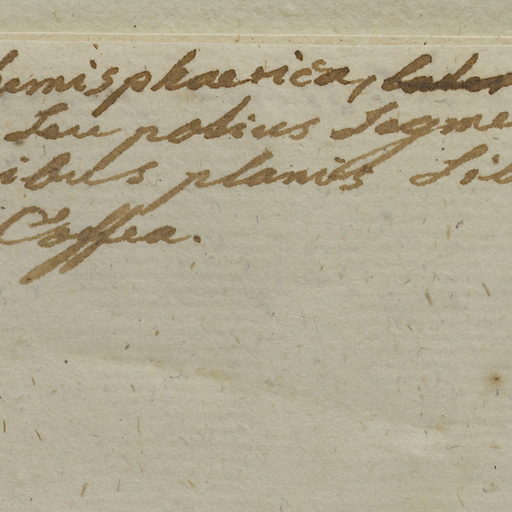 hemisphaerica, later
Seu potius Segme
ibus planis Sib
Coffea.